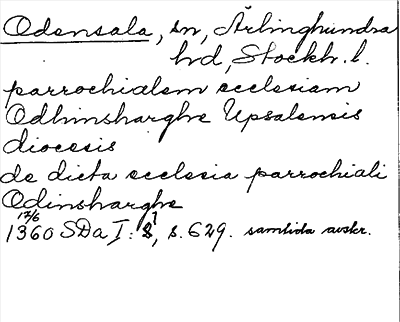 Odensala, sn, Ärlinghundra
hd, Stockh. l.
parrochialem ecclesiam
Odhinsharghe Upsalensis
diocesis
de dicta ecclesia parrochiali
Odinsharghe
17/6
1360 SDa I: 8?, s. 629. samtida avskr.